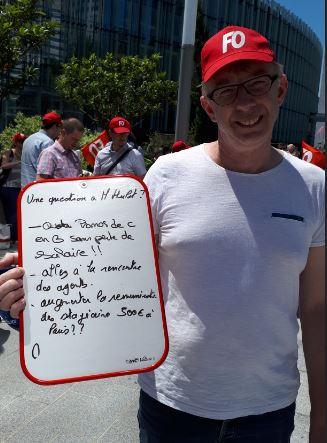 FO
FO
Une question à M Hulot ?
- Promos de C
en B sans perte de
salaire !!
- allez à la rencontre
des agents.
- augmenter la
des stagiaires 500€ à
Paris ??